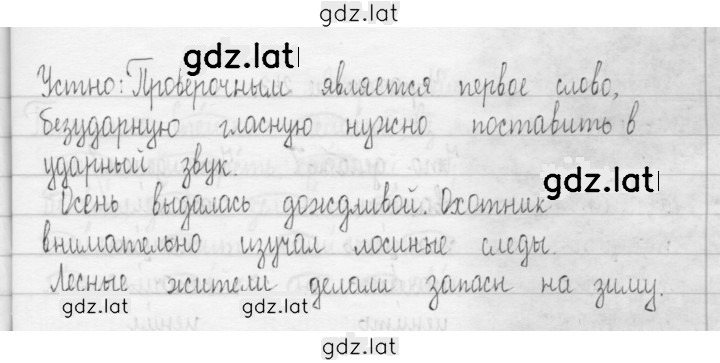 gdz.lat
gdz.lat
Устно: Проверочным является первое слово,
безударную гласную нужно поставить в
ударный звук.
gdz.lat
Осень выдалась дождливой. Охотник
внимательно изучал лосиные следы.
Лесные жители делали запасы на зиму.
gdz.lat gdz.lat
gdz.lat